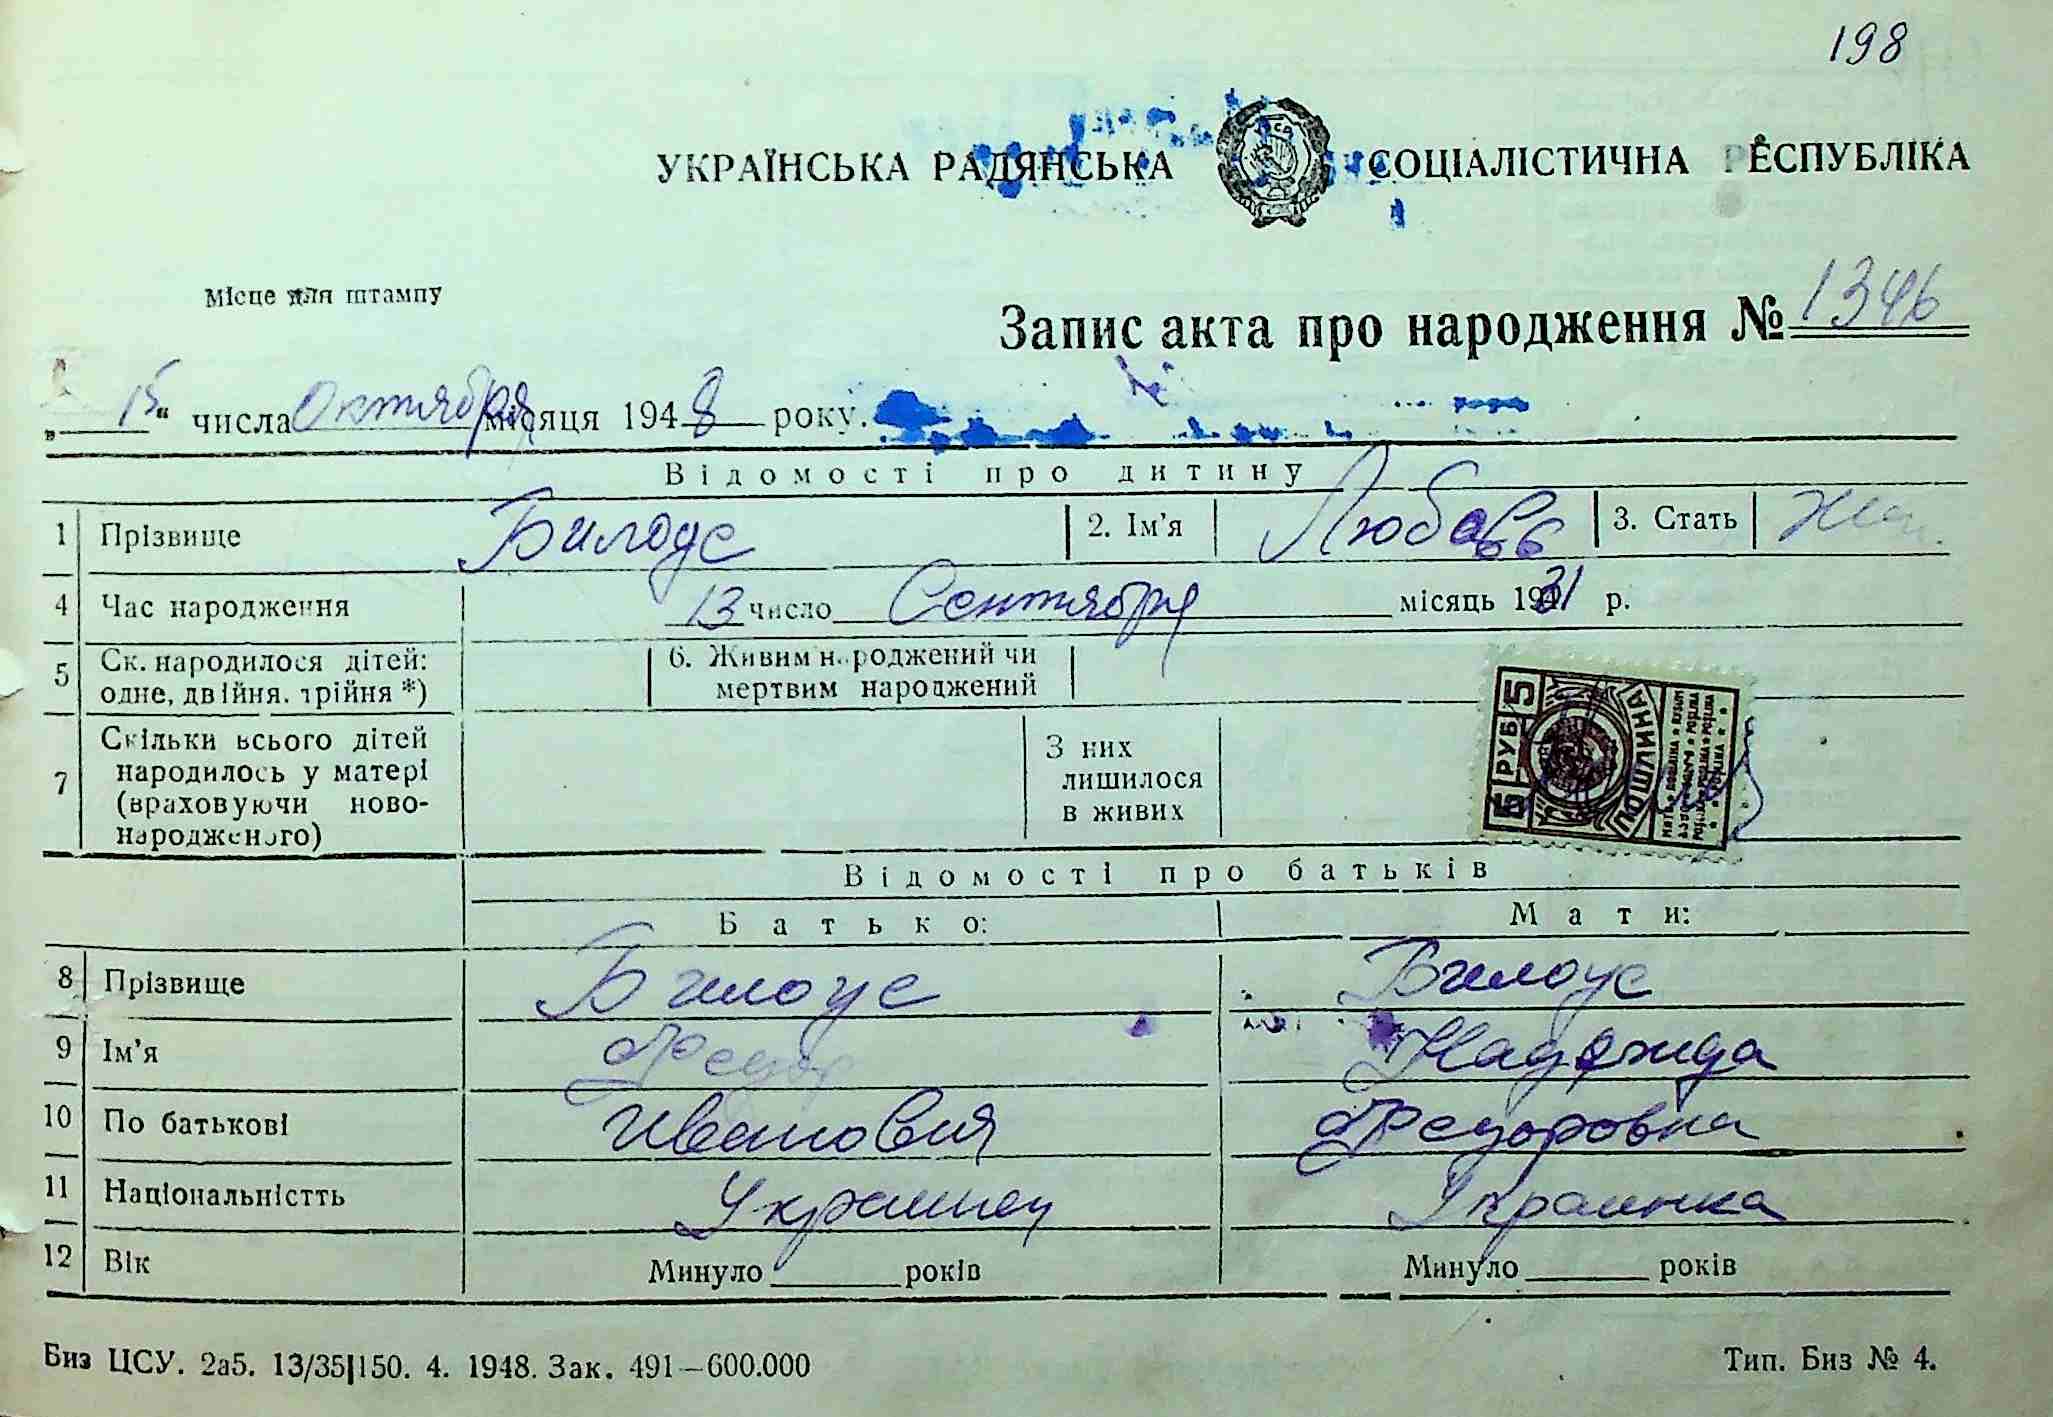 198
УКРАЇНСЬКА РАДЯНСЬКА СОЦІАЛІСТИЧНА РЕСПУБЛІКА
Місце для штампу
Запис акта про народження № 1346
„ 15 “ числа Октября місяця 1948 року.
Відомості про дитину
1 Прізвище Билоус 2. Ім'я Любовь 3. Стать Жен.
4 Час народження 13 число Сентября місяць 1931 р.
5 Ск. народилося дітей: одне, двійня. трійня *) 6. Живим народжений чи мертвим народжений
7 Скільки всього дітей народилось у матері (враховуючи ново-народженого) З них лишилося в живих
5 РУБ 5
ПОШЛИНА
Відомості про батьків
Батько: Мати:
8 Прізвище Билоус Билоус
9 Ім'я Федор Надежда
10 По батькові Иванович Федоровна
11 Національністть Украинец Украинка
12 Вік Минуло років Минуло років
Биз ЦСУ. 2а5. 13/35|150. 4. 1948. Зак. 491—600.000 Тип. Биз № 4.